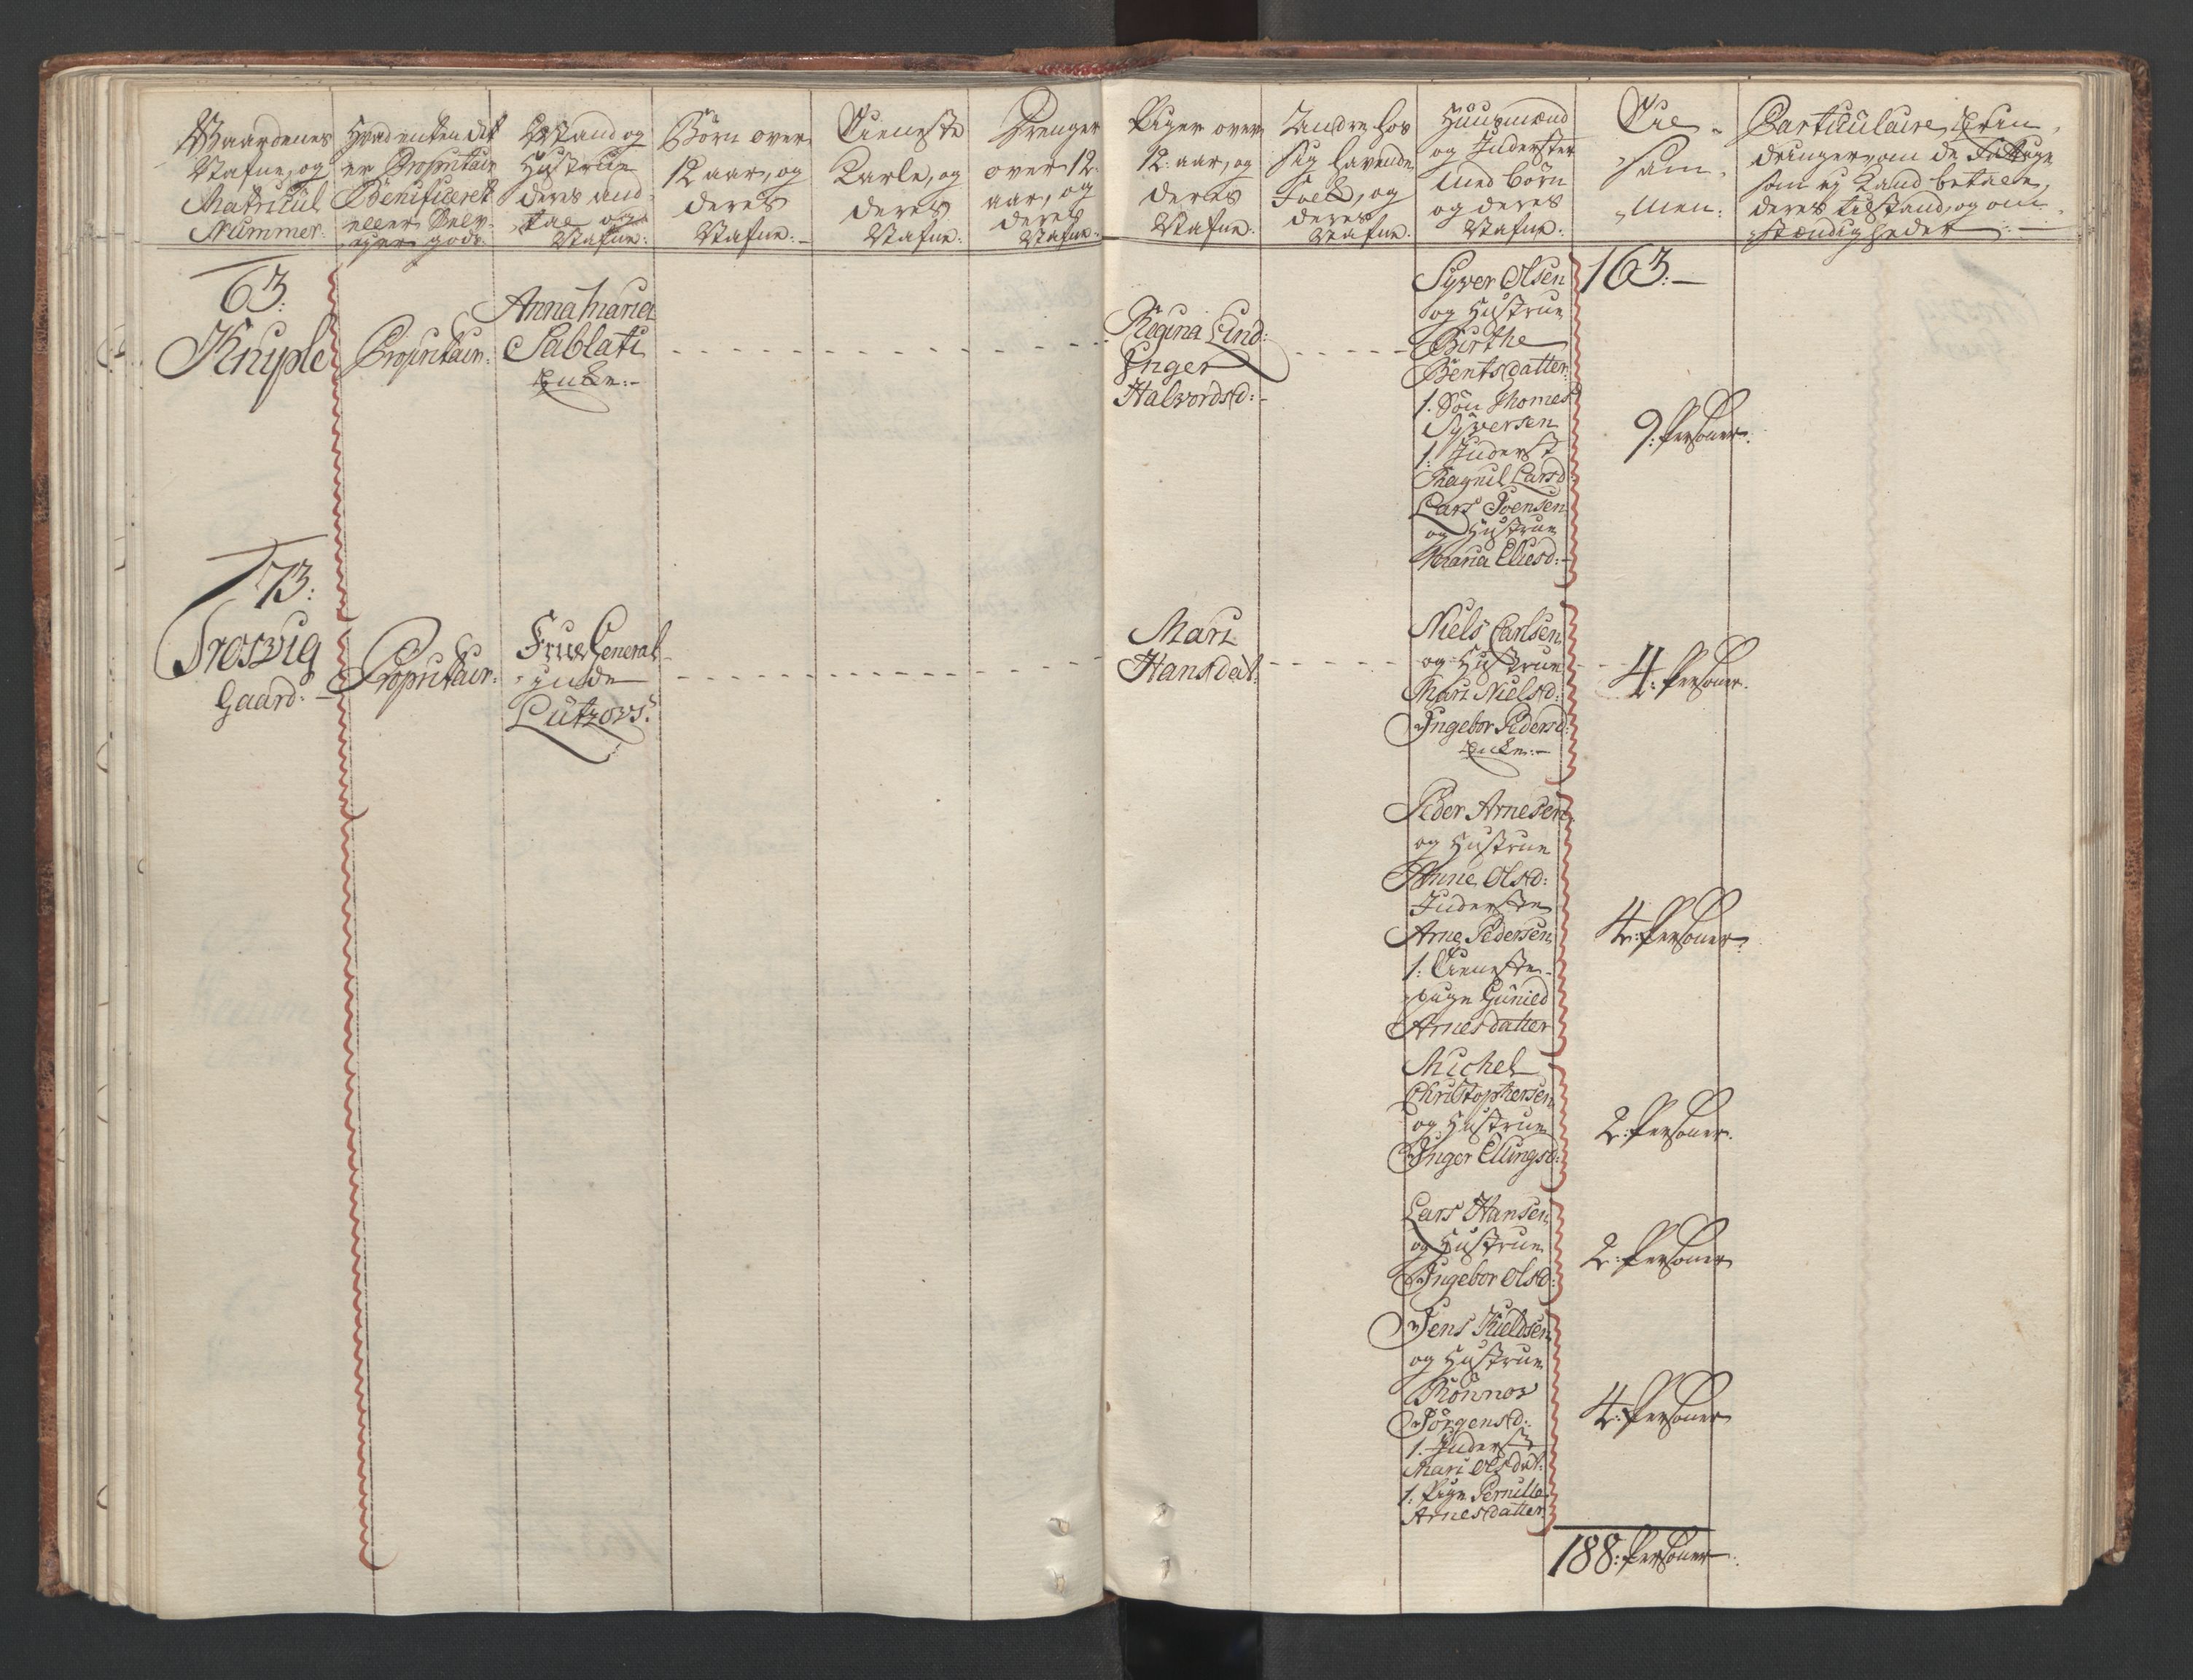 Gaardenes
Nafne, og
Matricul
Nummer:
Hvad enten det
er Proprietair
Beneficeret
eller Selv-
eyer gods
Opstand og
Hustrue
deres and-
tal og
Nafne:
Börn over
12 aar, og
deres
Nafne:
Tieneste
Karle, og
deres
Nafne:
Drenger
over 12
aar, og
deres
Nafne:
Piger over
12: aar, og
deres
Nafne:
Andre hos
sig havende
Folk, og
deres
Nafne:
Huusmænd
og Inderster
med börn
og deres
Nafne:
Til-
sam-
men:
Particulaire Erin-
dringer, om de Fattige
som ej kand betale,
deres tilstand, og om-
stændigheder
63:
Kniple
Proprietair:
Anna Maria
Sablati
Enke:
Regina Lind:
Inger
Halvordsd:
Syver Olsen
og Hustrue
Birthe
Bentsdatter:
1. Sön Thomes
Syversen
1. Inderst
Ragnil Larsd:
Lars Joensen
og Hustrue
Maria Eliesd:
163:
9: Personer:
73:
Trosvig
Gaard:
Proprietair:
Frue General-
inde
Lützows:
Mari
Hansdat:
Niels Carlsen
og Hustrue
Mari Nielsd:
Ingebor Pedersd:
Enke:
4: Personer:
Peder Arnesen
og Hustrue
Anne Olsd:
Inderste
Arne Pedersen
1: Tieneste-
pige Gunild
Arnesdatter
4: Personer:
Michel
Christophersen
og Hustrue
Inger Ellingsd:
2: Personer:
Lars Hansen
og Hustrue
Ingebor Olsd:
2: Personer
Jens Kieldsen
og Hustrue
Rönnov
Jörgensd:
1. Inderste
Mari Olsdat:
1: Pige Pernille
Arnesdatter
4: Personer
188: Personer